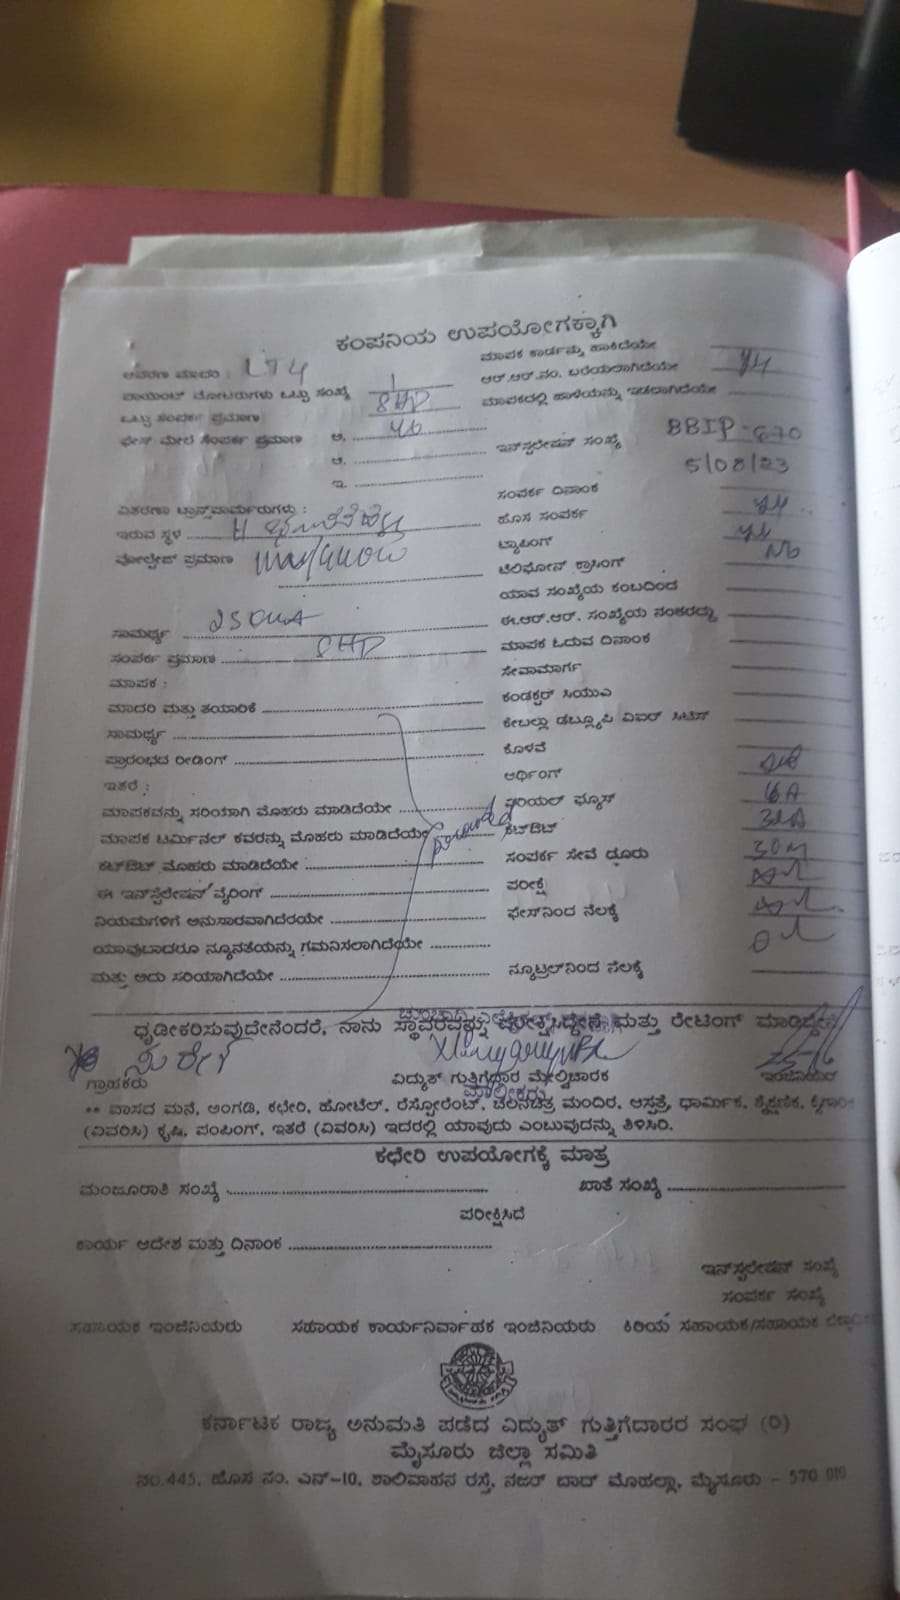 ಕಂಪನಿಯ ಉಪಯೋಗಕ್ಕಾಗಿ
ಮಾಪಕ ಕಾರ್ಡನ್ನು ಹಾಕಿದೆಯೇ
: LT4
ಆರ್.ಆರ್.ನಂ. ಬರೆಯಲಾಗಿದೆಯೇ
ಪಾಯಿಂಟ್ ಮೋಟರುಗಳು ಒಟ್ಟು ಸಂಖ್ಯೆ 1
ಮಾಪಕದಲ್ಲಿ ಹಾಳೆಯನ್ನು ಇಡಲಾಗಿದೆಯೇ
ಒಟ್ಟು ಸಂಪರ್ಕ ಪ್ರಮಾಣ
ಫೇಸ್ ಮೇಲೆ ಸಂಪರ್ಕ ಪ್ರಮಾಣ ಅ.
ಇನ್‌ಸ್ಟಲೇಷನ್ ಸಂಖ್ಯೆ BBIP-670
ಆ.
5/08/23
ಇ.
ಸಂಪರ್ಕ ದಿನಾಂಕ
ವಿತರಣಾ ಟ್ರಾನ್ಸ್‌ಫಾರ್ಮರುಗಳು :
ಹೊಸ ಸಂಪರ್ಕ
ಇರುವ ಸ್ಥಳ
ಟ್ಯಾಪಿಂಗ್
ವೋಲ್ಟೇಜ್ ಪ್ರಮಾಣ
ಟೆಲಿಫೋನ್ ಕ್ರಾಸಿಂಗ್
ಯಾವ ಸಂಖ್ಯೆಯ ಕಂಬದಿಂದ
ಈ.ಆರ್.ಆರ್. ಸಂಖ್ಯೆಯ ನಂತರದ್ದು
ಸಾಮರ್ಥ್ಯ
ಮಾಪಕ ಓದುವ ದಿನಾಂಕ
ಸಂಪರ್ಕ ಪ್ರಮಾಣ
ಸೇವಾಮಾರ್ಗ
ಮಾಪಕ :
ಕಂಡಕ್ಟರ್ ಸಿಯುಎ
ಮಾದರಿ ಮತ್ತು ತಯಾರಿಕೆ
ಕೇಬಲ್ಲು ಡಬ್ಲ್ಯೂಪಿ ವಿಐಆರ್
ಸಾಮರ್ಥ್ಯ
ಕೊಳವೆ
ಪ್ರಾರಂಭದ ರೀಡಿಂಗ್
ಆರ್ಥಿಂಗ್
ಇತರೆ :
ಏರಿಯಲ್ ಫ್ಯೂಸ್ 16A
ಮಾಪಕವನ್ನು ಸರಿಯಾಗಿ ಮೊಹರು ಮಾಡಿದೆಯೇ
ಕಟ್‌ಔಟ್ 32A
ಮಾಪಕ ಟರ್ಮಿನಲ್ ಕವರನ್ನು ಮೊಹರು ಮಾಡಿದೆಯೇ
ಸಂಪರ್ಕ ಸೇವೆ ದೂರು 30M
ಕಟ್‌ಔಟ್ ಮೊಹರು ಮಾಡಿದೆಯೇ
ಪರೀಕ್ಷೆ
ಈ ಇನ್‌ಸ್ಟಲೇಷನ್ ವೈರಿಂಗ್
ಫೇಸ್‌ನಿಂದ ನೆಲಕ್ಕೆ
ನಿಯಮಗಳಿಗೆ ಅನುಸಾರವಾಗಿದೆಯೇ
ಯಾವುದಾದರೂ ನ್ಯೂನತೆಯನ್ನು ಗಮನಿಸಲಾಗಿದೆಯೇ
ನ್ಯೂಟ್ರಲ್‌ನಿಂದ ನೆಲಕ್ಕೆ
ಮತ್ತು ಅದು ಸರಿಯಾಗಿದೆಯೇ
ಧೃಡೀಕರಿಸುವುದೇನೆಂದರೆ, ನಾನು ಸ್ಥಾವರವನ್ನು ಪರೀಕ್ಷಿಸಿದ್ದೇನೆ ಮತ್ತು ರೇಟಿಂಗ್ ಮಾಡಿದ್ದೇನೆ
ಸುರೇಶ
ಗ್ರಾಹಕರು ವಿದ್ಯುತ್ ಗುತ್ತಿಗೆದಾರ ಮೇಲ್ವಿಚಾರಕ ಇಂಜಿನಿಯರ್
ಮಾಲೀಕರು
** ವಾಸದ ಮನೆ, ಅಂಗಡಿ, ಕಛೇರಿ, ಹೋಟೆಲ್, ರೆಸ್ಟೋರೆಂಟ್, ಚಲನಚಿತ್ರ ಮಂದಿರ, ಆಸ್ಪತ್ರೆ, ಧಾರ್ಮಿಕ, ಶೈಕ್ಷಣಿಕ,
(ವಿವರಿಸಿ) ಕೃಷಿ, ಪಂಪಿಂಗ್, ಇತರೆ (ವಿವರಿಸಿ) ಇದರಲ್ಲಿ ಯಾವುದು ಎಂಬುವುದನ್ನು ತಿಳಿಸಿರಿ.
ಕಛೇರಿ ಉಪಯೋಗಕ್ಕೆ ಮಾತ್ರ
ಮಂಜೂರಾತಿ ಸಂಖ್ಯೆ ಖಾತೆ ಸಂಖ್ಯೆ
ಪರೀಕ್ಷಿಸಿದೆ
ಕಾರ್ಯ ಆದೇಶ ಮತ್ತು ದಿನಾಂಕ
ಇನ್‌ಸ್ಟಲೇಷನ್ ಸಂಖ್ಯೆ
ಸಂಪರ್ಕ ಸಂಖ್ಯೆ
ಸಹಾಯಕ ಇಂಜಿನಿಯರು ಸಹಾಯಕ ಕಾರ್ಯನಿರ್ವಾಹಕ ಇಂಜಿನಿಯರು ಕಿರಿಯ ಸಹಾಯಕ/ಸಹಾಯಕ
ಕರ್ನಾಟಕ ರಾಜ್ಯ ಅನುಮತಿ ಪಡೆದ ವಿದ್ಯುತ್ ಗುತ್ತಿಗೆದಾರರ ಸಂಘ (ರಿ)
ಮೈಸೂರು ಜಿಲ್ಲಾ ಸಮಿತಿ
ನಂ.445, ಹೊಸ ನಂ. ಎನ್-10, ಶಾಲಿವಾಹನ ರಸ್ತೆ, ನಜರ್ ಬಾದ್ ಮೊಹಲ್ಲಾ, ಮೈಸೂರು - 570 010